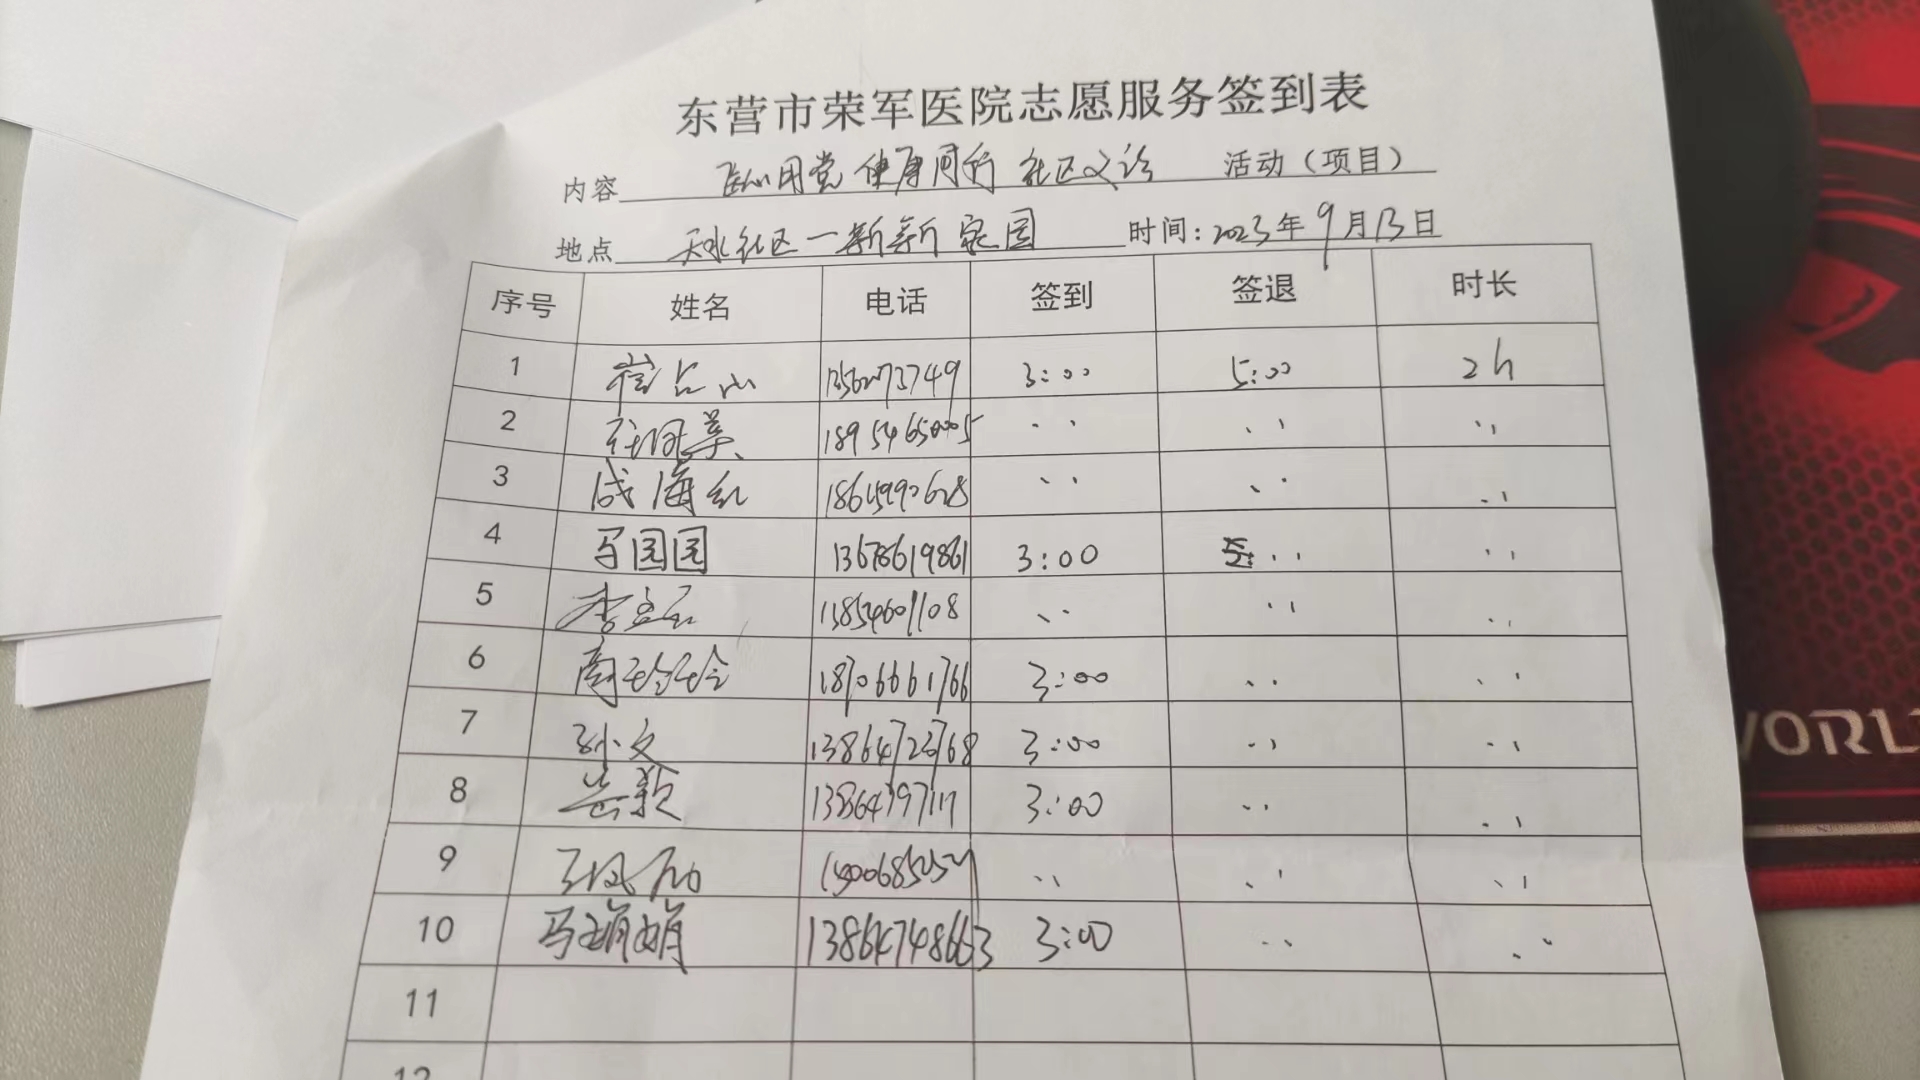 东营市荣军医院志愿服务签到表
内容 医心用党 健康同行 社区义诊 活动（项目）
地点 天水社区一新新家园 时间：2023年9月13日
序号 姓名 电话 签到 签退 时长
1 崔占山 13562273749 3:00 5:00 2h
2 18954650005 〃 〃 〃
3 成海红 〃 〃 〃
4 马国国 13678619861 3:00 〃 〃
5 李立石 13854601108 〃 〃 〃
6 商玲玲 18706661766 3:00 〃 〃
7 孙文 13864723768 3:00 〃 〃
8 岳颖 3:00 〃 〃
9 〃 〃 〃
10 马娟娟 13864748663 3:00 〃 〃
11
12
WORL